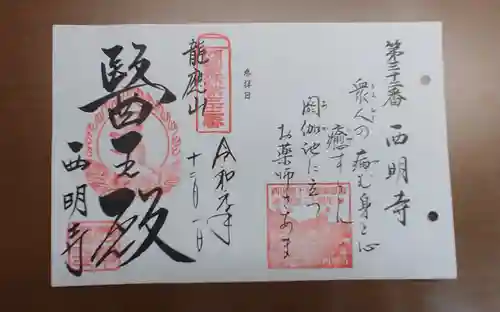 第三十二番 西明寺
衆人の病む身と心
癒す
閼伽池に立つ
お薬師さあま
奉拝日
龍應山
令和元年
十二月一日
醫王殿
西明寺